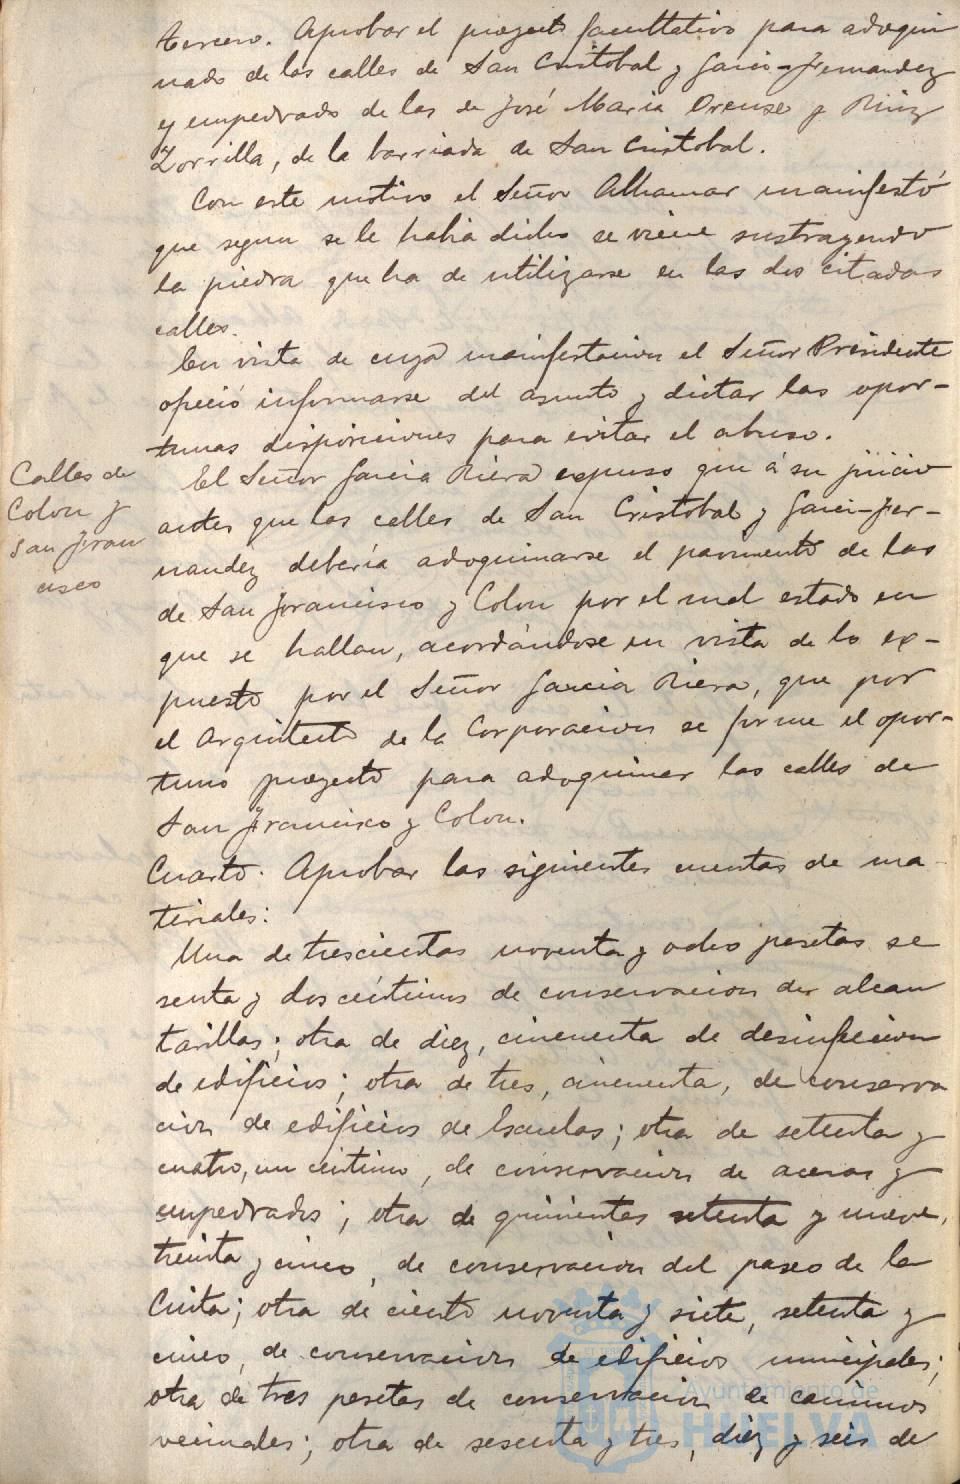 tercero. Aprobar el proyecto facultativo para adoqui
nado de las calles de San Cristobal y Garci-Fernandez
y empedrado de las de José Maria Orense y Ruiz
Zorrilla, de la barriada de San Cristobal.
Con este motivo el Señor Alhamar manifestó
que segun se le habia dicho se viene sustrayendo
la piedra que ha de utilizarse en las dos citadas
calles.
En vista de cuya manifestacion el Señor Presidente
ofreció informarse del asunto y dictar las opor-
tunas disposiciones para evitar el abuso.
Calles de
Colon y
San Fran
cisco
El Señor Garcia Riera expuso que á su juicio
antes que las calles de San Cristobal y Garci-Fer-
nandez debería adoquinarse el pavimento de las
de San Francisco y Colon por el mal estado en
que se hallan, acordándose en vista de lo ex-
puesto por el Señor Garcia Riera, que por
el Arquitecto de la Corporacion se forme el opor-
tuno proyecto para adoquinar las calles de
San Francisco y Colon.
Cuarto. Aprobar las siguientes cuentas de ma
teriales:
Una de trescientas noventa y ocho pesetas se
senta y dos céntimos de conservacion de alcan
tarillas; otra de diez, cincuenta de desinfeccion
de edificios; otra de tres, cincuenta, de conserva
cion de edificios de Escuelas; otra de setenta y
cuatro, un céntimo, de conservacion de aceras y
empedrados; otra de quinientas setenta y nueve,
treinta y cinco, de conservacion del paseo de la
Cinta; otra de ciento noventa y siete, setenta y
cinco, de conservacion de edificios municipales;
otra de tres pesetas de conservacion de caminos
vecinales; otra de sesenta y tres, diez y seis de
Ayuntamiento de
HUELVA